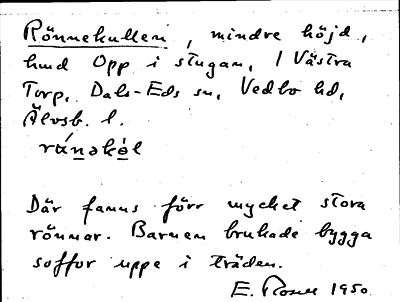 Rönnekullen, mindre höjd,
hmd Opp i stugan, i Västra
Torp, Dals-Eds sn, Vedbo hd,
Älvsb. l.
Där fanns förr mycket stora
rönnar. Barnen brukade bygga
soffor uppe i träden.
E. 1950